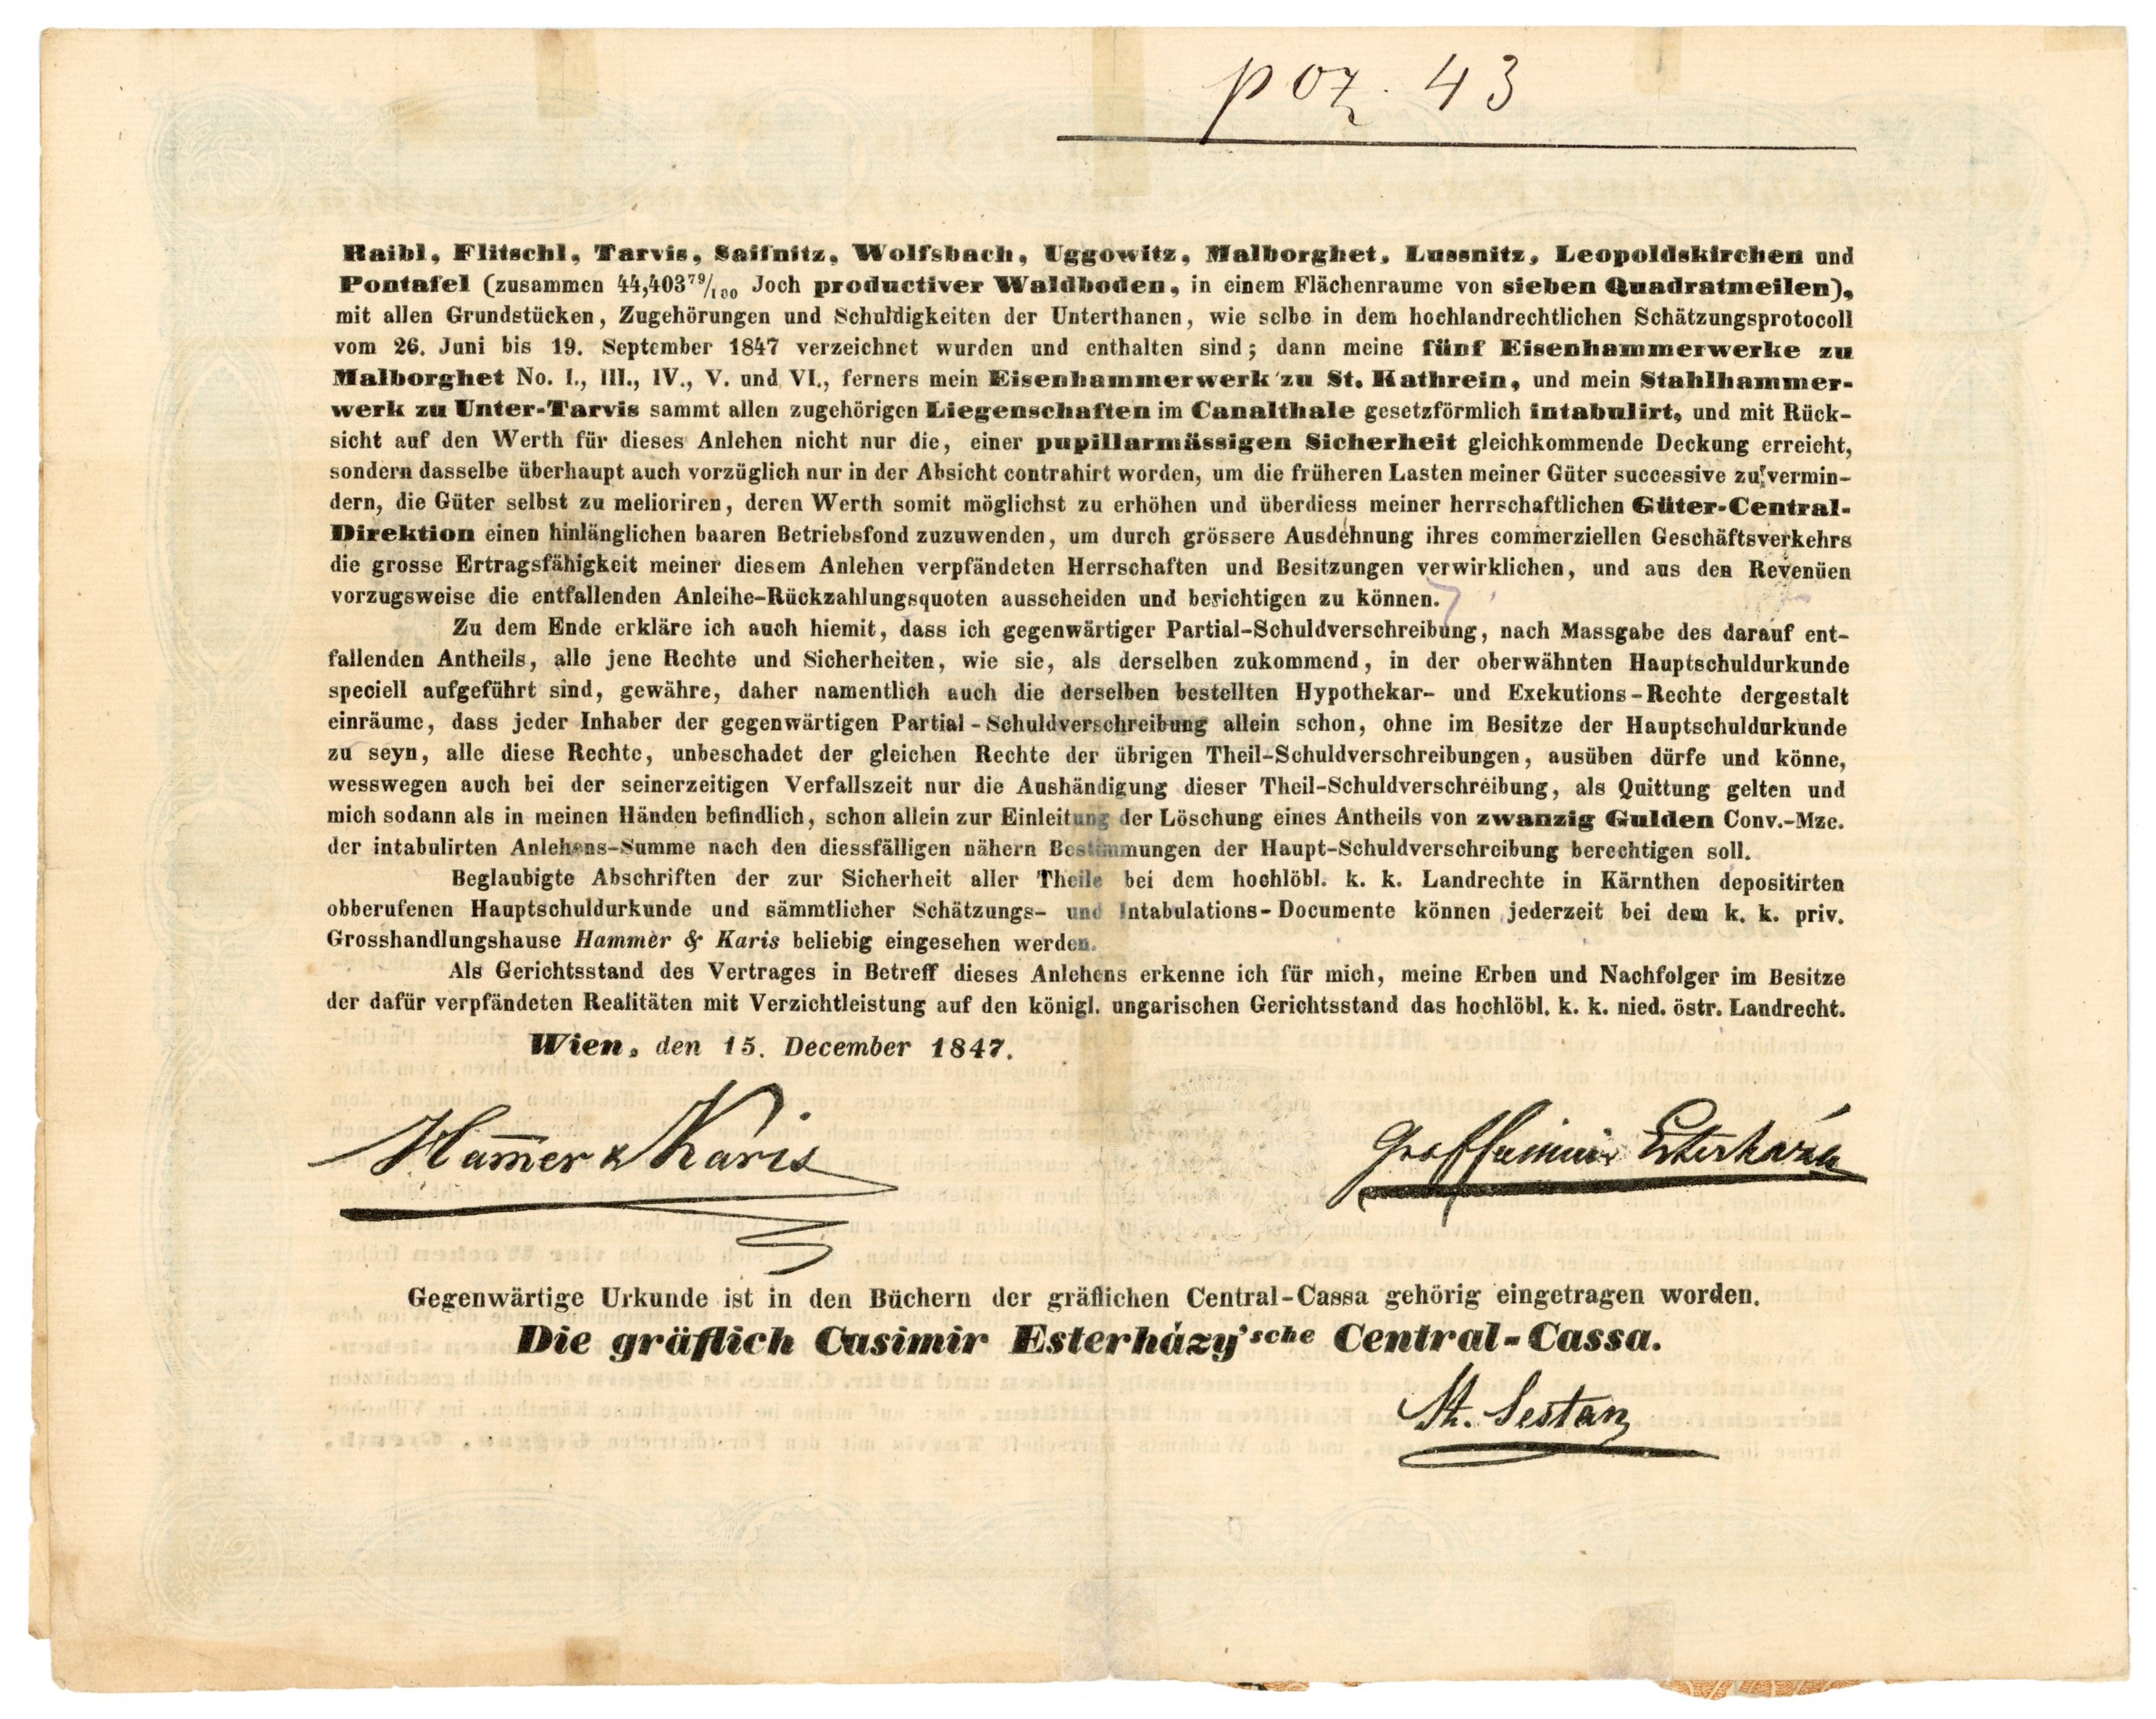 poz. 43
Raibl, Flitschl, Tarvis, Saifnitz, Wolfsbach, Uggowitz, Malborghet, Lussnitz, Leopoldskirchen und
Pontafel (zusammen 44,403⁷⁹/₁₀₀ Joch productiver Waldboden, in einem Flächenraume von sieben Quadratmeilen),
mit allen Grundstücken, Zugehörungen und Schuldigkeiten der Unterthanen, wie selbe in dem hochlandrechtlichen Schätzungsprotocoll
vom 26. Juni bis 19. September 1847 verzeichnet wurden und enthalten sind; dann meine fünf Eisenhammerwerke zu
Malborghet No. I., III., IV., V. und VI., ferners mein Eisenhammerwerk zu St. Kathrein, und mein Stahlhammer-
werk zu Unter-Tarvis sammt allen zugehörigen Liegenschaften im Canalthale gesetzförmlich intabulirt, und mit Rück-
sicht auf den Werth für dieses Anlehen nicht nur die, einer pupillarmässigen Sicherheit gleichkommende Deckung erreicht,
sondern dasselbe überhaupt auch vorzüglich nur in der Absicht contrahirt worden, um die früheren Lasten meiner Güter successive zu vermin-
dern, die Güter selbst zu melioriren, deren Werth somit möglichst zu erhöhen und überdiess meiner herrschaftlichen Güter-Central-
Direktion einen hinlänglichen baaren Betriebsfond zuzuwenden, um durch grössere Ausdehnung ihres commerziellen Geschäftsverkehrs
die grosse Ertragsfähigkeit meiner diesem Anlehen verpfändeten Herrschaften und Besitzungen verwirklichen, und aus den Revenüen
vorzugsweise die entfallenden Anleihe-Rückzahlungsquoten ausscheiden und berichtigen zu können.
Zu dem Ende erkläre ich auch hiemit, dass ich gegenwärtiger Partial-Schuldverschreibung, nach Massgabe des darauf ent-
fallenden Antheils, alle jene Rechte und Sicherheiten, wie sie, als derselben zukommend, in der oberwähnten Hauptschuldurkunde
speciell aufgeführt sind, gewähre, daher namentlich auch die derselben bestellten Hypothekar- und Exekutions-Rechte dergestalt
einräume, dass jeder Inhaber der gegenwärtigen Partial-Schuldverschreibung allein schon, ohne im Besitze der Hauptschuldurkunde
zu seyn, alle diese Rechte, unbeschadet der gleichen Rechte der übrigen Theil-Schuldverschreibungen, ausüben dürfe und könne,
wesswegen auch bei der seinerzeitigen Verfallszeit nur die Aushändigung dieser Theil-Schuldverschreibung, als Quittung gelten und
mich sodann als in meinen Händen befindlich, schon allein zur Einleitung der Löschung eines Antheils von zwanzig Gulden Conv.-Mze.
der intabulirten Anlehens-Summe nach den diessfälligen nähern Bestimmungen der Haupt-Schuldverschreibung berechtigen soll.
Beglaubigte Abschriften der zur Sicherheit aller Theile bei dem hochlöbl. k. k. Landrechte in Kärnthen depositirten
obberufenen Hauptschuldurkunde und sämmtlicher Schätzungs- und Intabulations-Documente können jederzeit bei dem k. k. priv.
Grosshandlungshause Hammer & Karis beliebig eingesehen werden.
Als Gerichtsstand des Vertrages in Betreff dieses Anlehens erkenne ich für mich, meine Erben und Nachfolger im Besitze
der dafür verpfändeten Realitäten mit Verzichtleistung auf den königl. ungarischen Gerichtsstand das hochlöbl. k. k. nied. östr. Landrecht.
Wien, den 15. December 1847.
Ham̅er & Karis
Graf Casimir Esterházy
Gegenwärtige Urkunde ist in den Büchern der gräflichen Central-Cassa gehörig eingetragen worden.
Die gräflich Casimir Esterházy'sche Central-Cassa.
St. Sestan